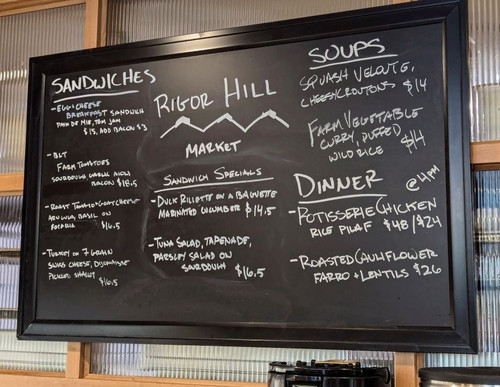 SANDWICHES
- EGG & CHEESE
BREAKFAST SANDWICH
PAIN DE MIE, TOM JAM
$15, ADD BACON $3
- BLT
FARM TOMATOES
SOURDOUGH GARLIC AIOLI
BACON $18.5
- ROAST TOMATO & GOAT CHEESE
ARUGULA BASIL ON
FOCACCIA $16.5
- TURKEY ON 7 GRAIN
SWISS CHEESE, DIJONNAISE
PICKLED SHALLOT
$16.5
RIGOR HILL
MARKET
SANDWICH SPECIALS
- DUCK RILLETTE ON A BAGUETTE
MARINATED CUCUMBER $14.5
- TUNA SALAD, TAPENADE,
PARSLEY SALAD ON
SOURDOUGH $16.5
SOUPS
SQUASH VELOUTE,
CHEESY CROUTONS $14
FARM VEGETABLE
CURRY, PUFFED
WILD RICE $14
DINNER @ 4PM
- ROTISSERIE CHICKEN
RICE PILAF $48/$24
- ROASTED CAULIFLOWER
FARRO + LENTILS $26